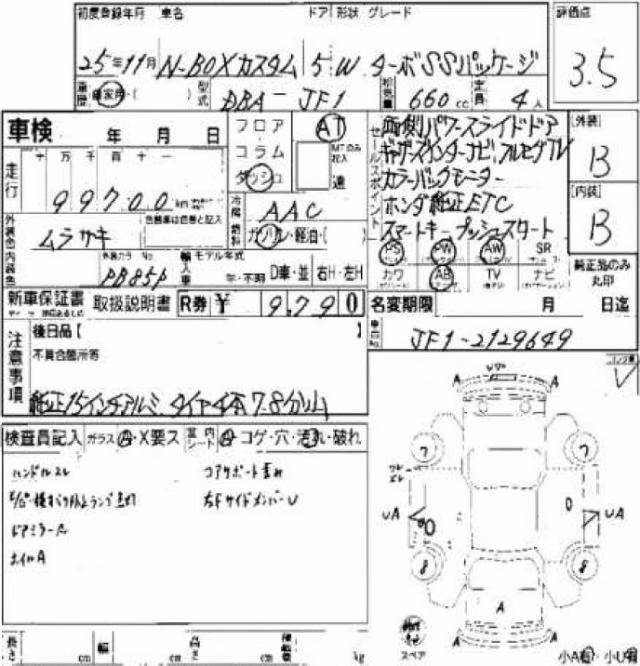 初度登録年月 車名 ドア 形状 グレード 評価点
25年11月 N-BOXカスタム 5 W ターボSSパッケージ 3.5
車歴 自家用・( ) 型式 DBA-JF1 排気量 660cc 定員 4人
車検 年 月 日 フロア AT
コラム
ダッシュ
セールスポイント
両側パワースライドドア
ギャザズインターナビ,フルセグTV
カラーバックモニター
ホンダ純正ETC
スマートキープッシュスタート
[外装] B
[内装] B
走行 十万千百十一
99700km
冷房 AAC
燃料 ガソリン・軽油・( )
外装色 ムラサキ 色替車は元色と記入
内装色 外装カラーNo. PB85P 輸入車 モデル年式
年・不明 D車・並 右H・左H
PS PW AW SR
カワ AB TV ナビ
純正品のみ丸印
新車保証書 取扱説明書 R券 ¥ 9,790
名変期限 月 日迄
車台No. JF1-2129649
注意事項
後日品【 】
不具合箇所等
純正15インチアルミ タイヤ4本7.8分山
検査員記入 ガラス A・X要ス 室内 シート
コゲ・穴・汚れ・破れ
ハンドルスレ コアサポート歪み
右FサイドメンバーU
ドアミラーA
ホイルA
A A
7 7
UA UA
8 8
A
A A
スペア
長さ cm 幅 cm 高さ cm 積載量 kg
小A有・小U有